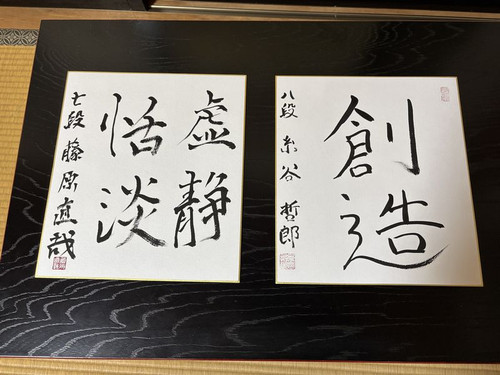 創造
八段 糸谷 哲郎
虚静
恬淡
七段 藤原直哉